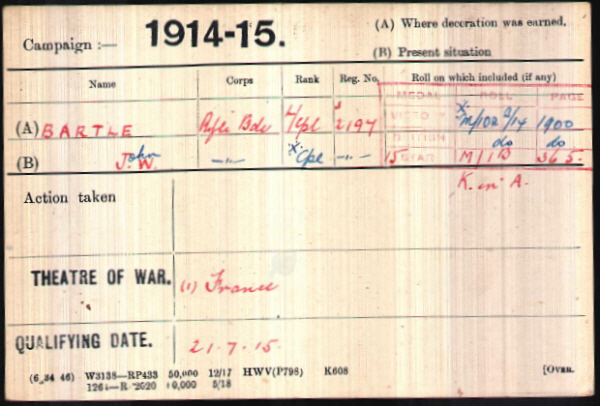 Campaign :— 1914-15.
(A) Where decoration was earned.
(B) Present situation
Name Corps Rank Reg. No. Roll on which included (if any)
MEDAL ROLL PAGE
(A) BARTLE Rifle Bde L/Cpl S 2197 VICTORY X M/102 B/14 1900
BRITISH do do
(B) John W. —"— X Cpl —"— 15 STAR M/1 B 365.
K. in A.
Action taken
THEATRE OF WAR. (1) France
QUALIFYING DATE. 21.7.15.
(6 34 46) W3138—RP433 50,000 12/17 HWV(P798) K608 [OVER.
1261—R 2020 0,000 5/18